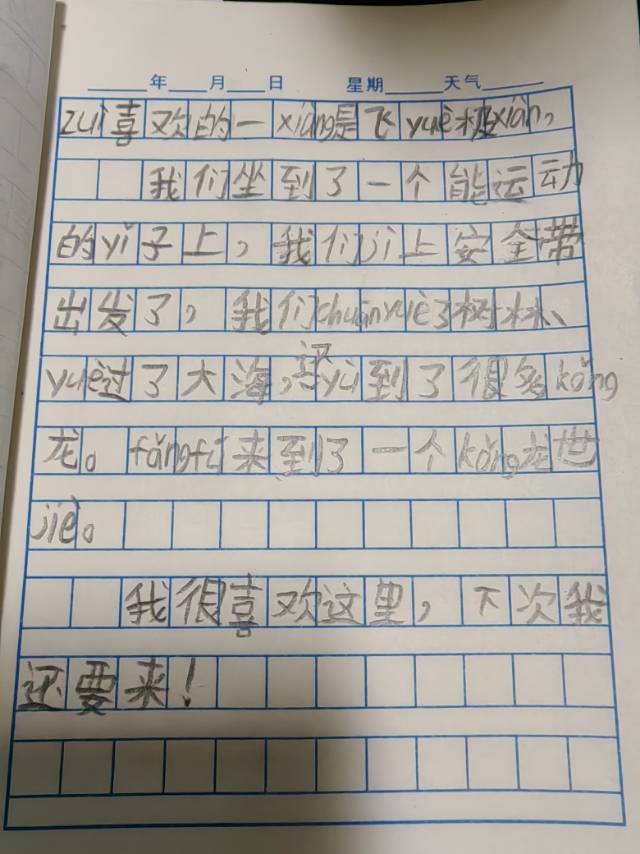 年 月 日 星期 天气
zuì喜欢的一xiàng是飞yuè极xiàn，
我们坐到了一个能运动
的yǐ子上，我们jì上安全带
出发了，我们chuānyuè了树林、
yuè过了大海，还yù到了很多kǒng
龙。fǎngfú来到了一个kǒng龙世
jiè。
我很喜欢这里，下次我
还要来！